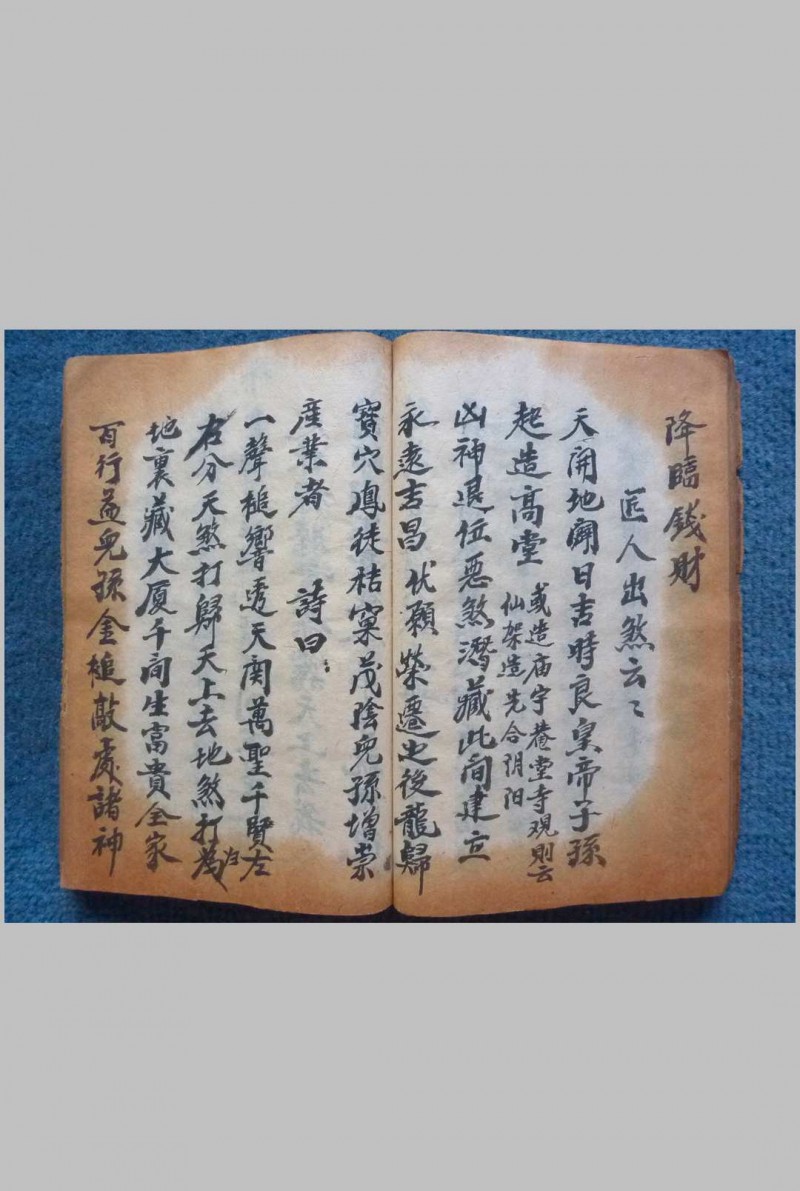 降臨錢財
匠人出煞云〻
天開地闢日吉時良皇帝子孫
起造高堂 或造庙宇菴堂寺观則云
仙架造先合阴阳
凶神退位恶煞潛藏此间建立
永遠吉昌伏願榮遷之後龍歸
寶穴鳯徒梧窠茂陰兒孫增崇
産業者 詩曰：
一聲槌響透天関萬聖千賢左
右分天煞打歸天上去地煞打為归
地裏藏大厦千间生富貴全家
百行益兒孫金槌敲處諸神